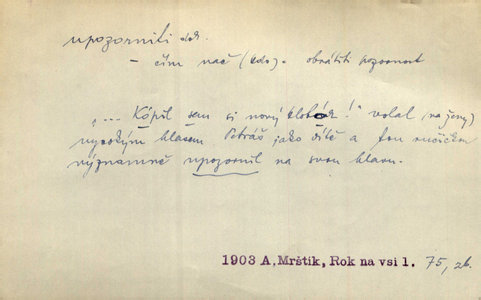 upozorniti dok.
– čím nač (kdo) – obrátiti pozornost
„... Kópil sem si nový klobók!" volal na ženy
vysokým hlasem Petráš jako dítě a tou ručičkou
významně upozornil na svou hlavu.
1903 A. Mrštík, Rok na vsi 1. 75, zb.